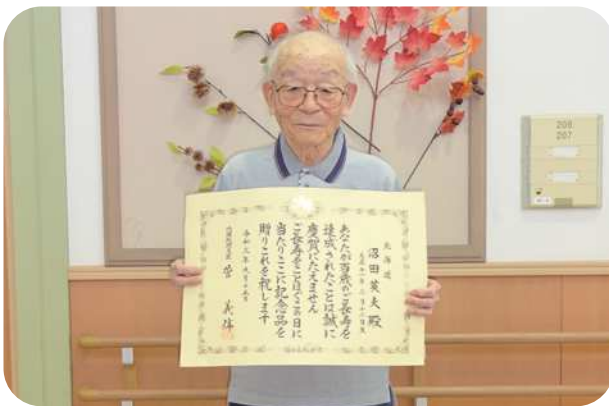 北海道
沼田英夫殿
あなたが百歳のご長寿を
達成されたことは誠に
慶賀にたえません
ご長寿をことほぐこの日に
当たりここに記念品を
贈りこれを祝します
令和三年九月十五日
内閣総理大臣 菅義偉
206
207